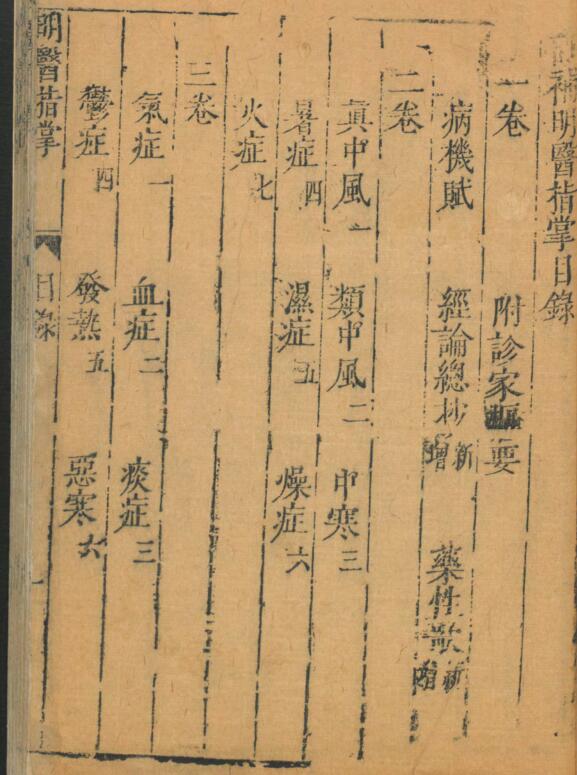 補明醫指掌目錄
一卷 附診家樞要
病機賦 經論總抄新增 藥性歌新增
二卷
真中風一 類中風二 中寒三
暑症四 濕症五 燥症六
火症七
三卷
氣症一 血症二 痰症三
鬱症四 發熱五 惡寒六
明醫指掌 目錄 一